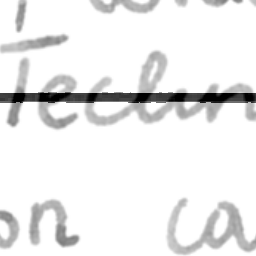 Techn
on ca